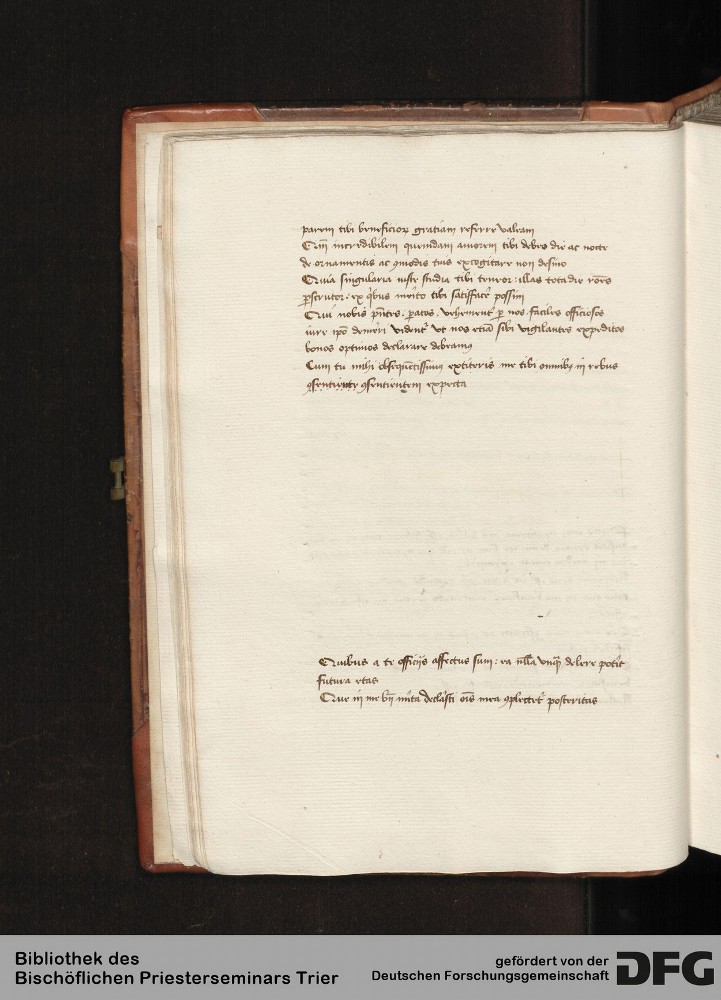 parem tibi beneficioꝝ gratiam referre valeam
Qm̄ incredibilem quemdam amorem tibi debeo die ac nocte
de ornamentis ac ꝯmodis tuis excogitare non desino
Quia singularia iuste studia tibi teneor: illas tota die roēs
ꝑscrutor: ex qͥbus mĩto tibi satisfacẽ possim
Qui nobis pñtes, ꝑatos, vehementẽ ꝑ nos faciles officiosos
iure ipõ demeri videntᷣ vt nos etiã sibi vigilantes expeditos
bonos optimos declarare debeamꝰ
Cum tu mihi obsequẽtissimus extiteris me tibi omnibꝫ in rebus
ꝯsentientẽ ꝯsentientem expecta
Quibus a te officijs affectus sum: ea nĺla vnqꝫ delere potĩt
futura etas
Que in me bñ mĩta declãsti oĩs mea ꝯplectetᷣ posteritas
Bibliothek des
Bischöflichen Priesterseminars Trier
gefördert von der
Deutschen Forschungsgemeinschaft
DFG